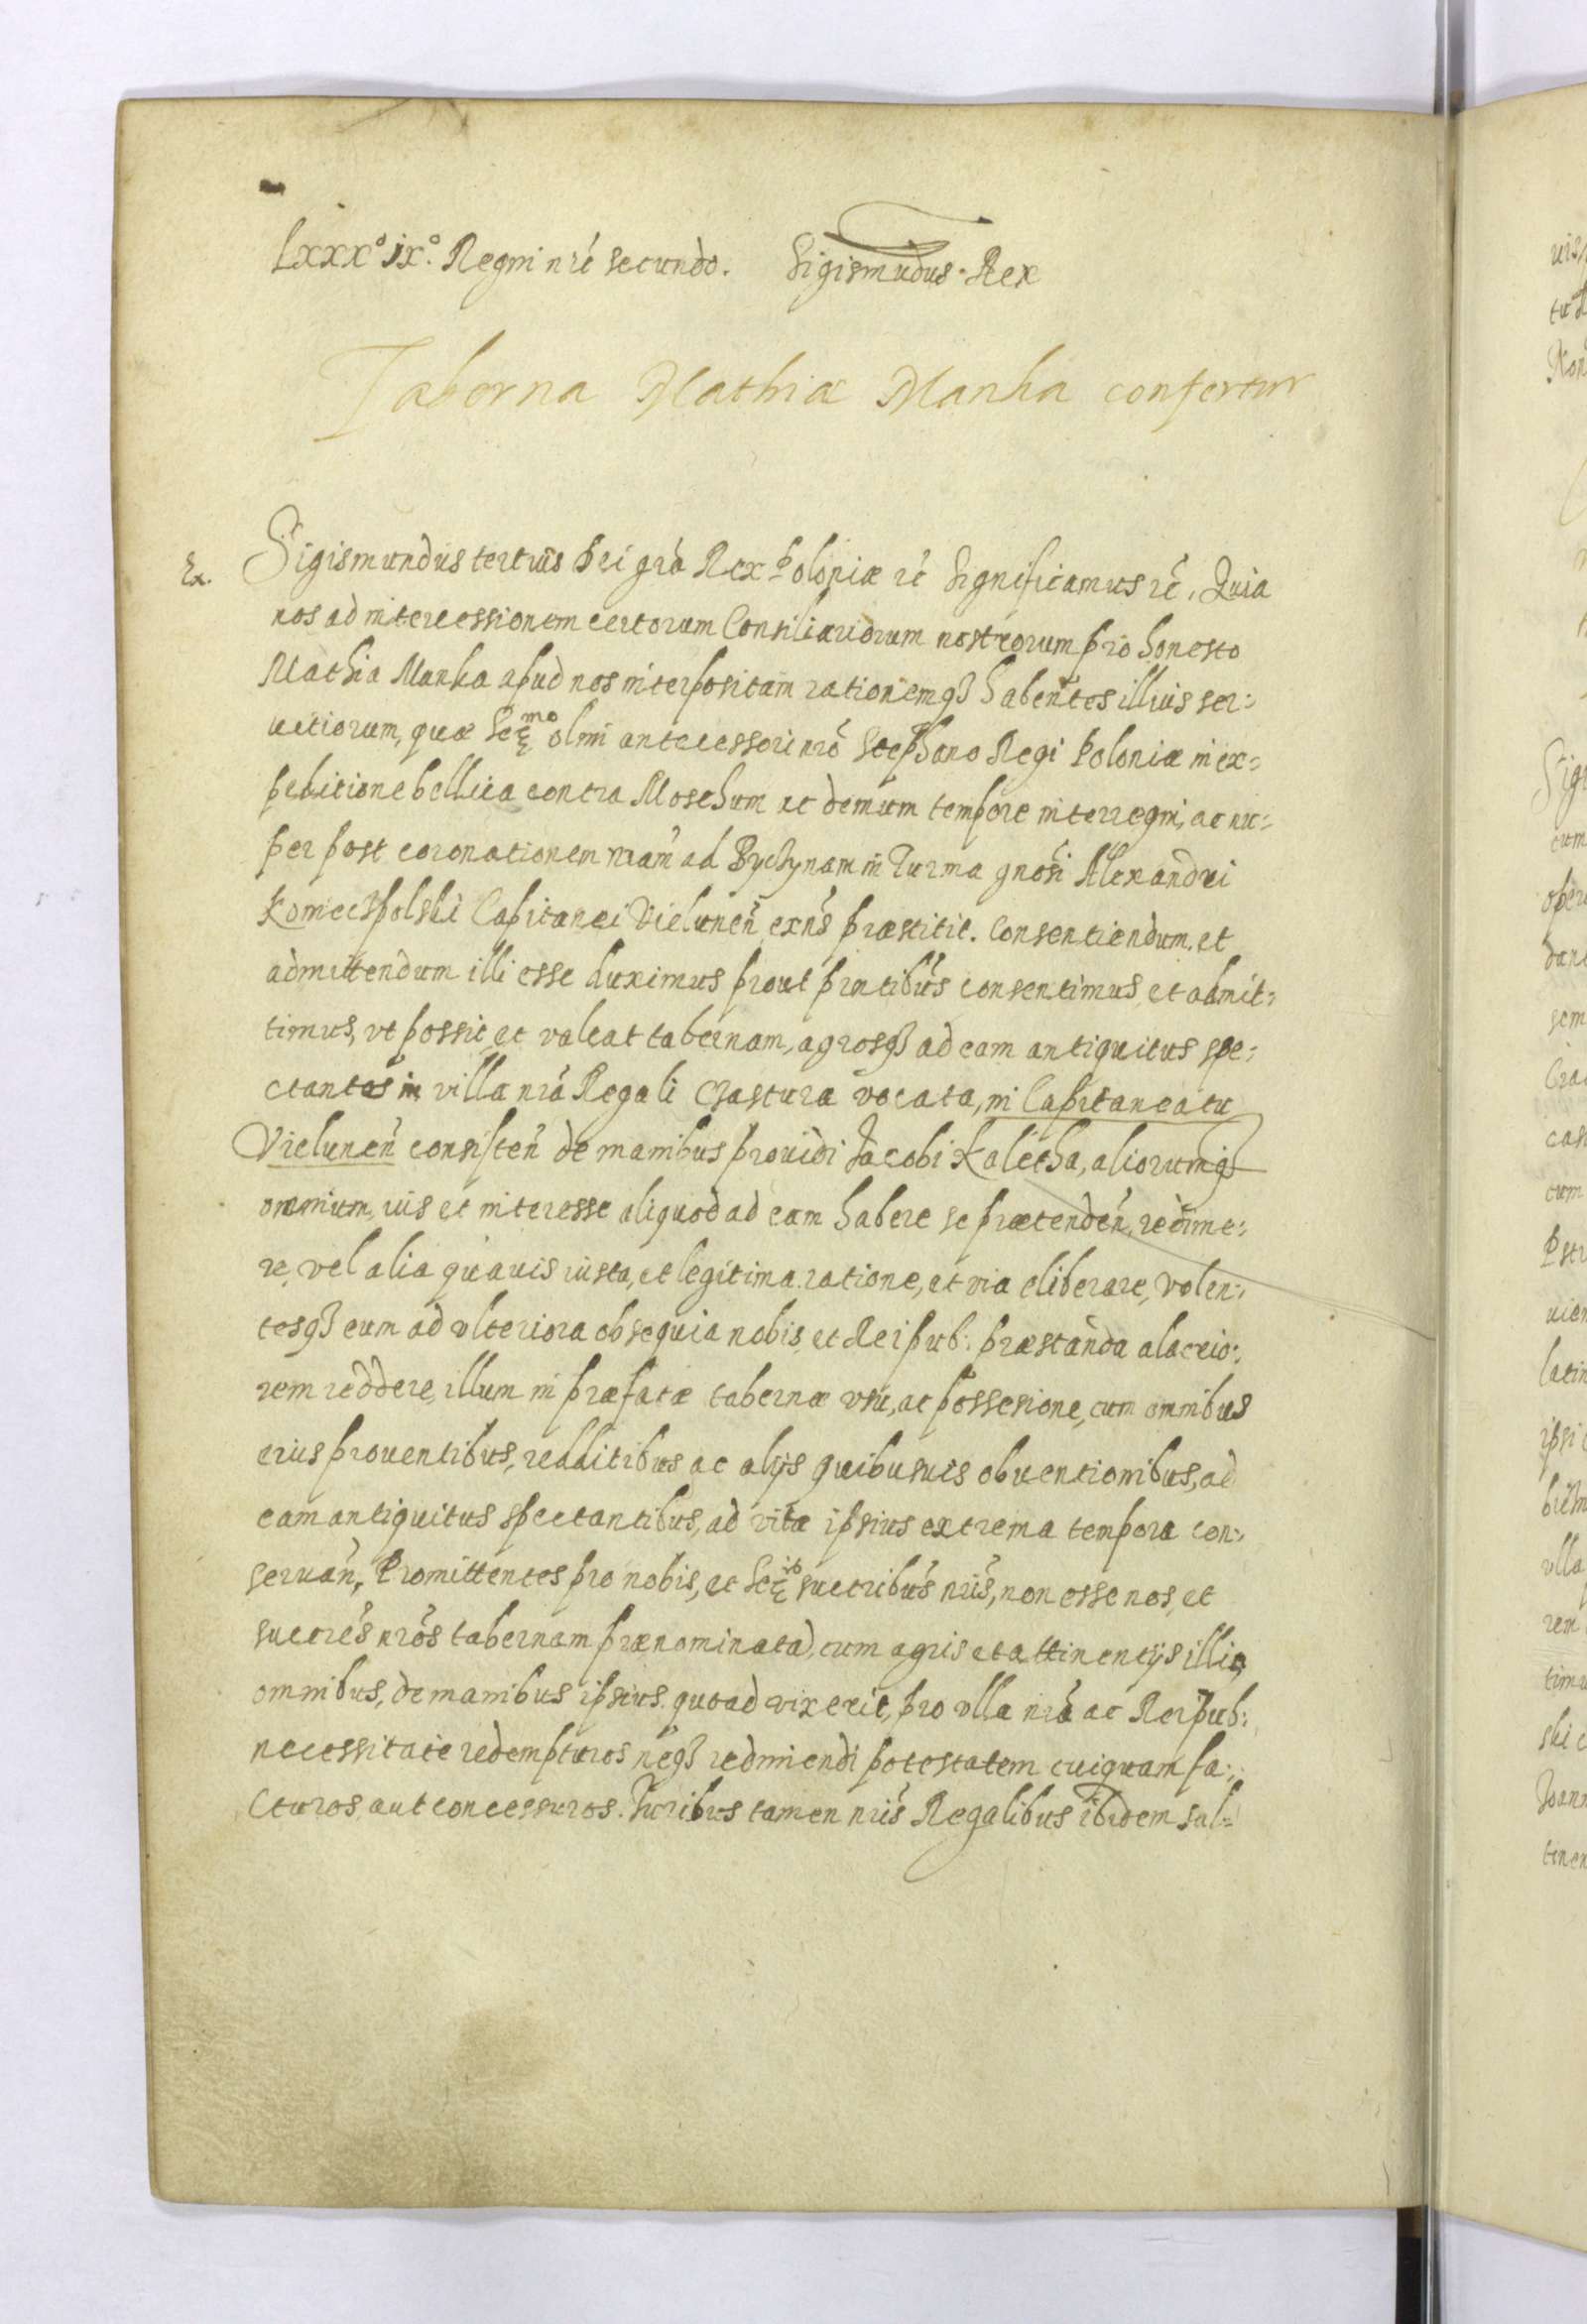 Lxxx° ix°. Regni nri secundo. Sigismudus Rex
Taberna Mathiæ Manka confertur
Ex. Sigismundus tertius Dei gra Rex Poloniæ rc Significamus rc, Quia
nos ad intercessionem certorum Consiliariorum nostrorum pro honesto
Mathia Manka apud nos interpositam rationemq habentes illius ser:
uitiorum, quæ Se olim antecessori nro Stephano Regi Poloniæ in ex:
peditione bellica contra Moschum ac demum tempore interregni, ac nu:
per post coronationem nram ad Bychynam in Turma gnosi Alexandri
Koniecspolski Capitanei Vielunen exns præstitit. Consentiendum, et
admittendum illi esse duximus prout pntibus consentimus, et admit:
timus, vt possit et valeat tabernam, agrosq ad eam antiquitus spe:
ctantes in villa nra Regali Czastura vocata, in Capitaneatu
Vielunen consisten de manibus prouidi Jacobi Kaletha, aliorumq
omnium, ius et interesse aliquod ad eam habere se prætenden, redime:
re, vel alia quauis iusta, et legitima ratione, et via eliberare, volen:
tesq eum ad vlteriora obsequia nobis, et Reipub: præstanda alacrio:
rem reddere, illum in præfatæ tabernæ vsu, ac possesione, cum omnibus
eius prouentibus, redditibus ac alijs quibusuis obuentionibus, ad
eam antiquitus spectantibus, ad vitæ ipsius extrema tempora con:
seruan, Promittentes pro nobis, et Se suctribus nris, non esse nos, et
sucres nros tabernam prænominatã, cum agris et attinentijs illis
omnibus, de manibus ipsius quoad vixerit, pro vlla nra ac Reipub:
necessitate redempturos neq redimendi potestatem cuiquam fa:
cturos, aut concessuros. Juribus tamen nris Regalibus ibidem sal: